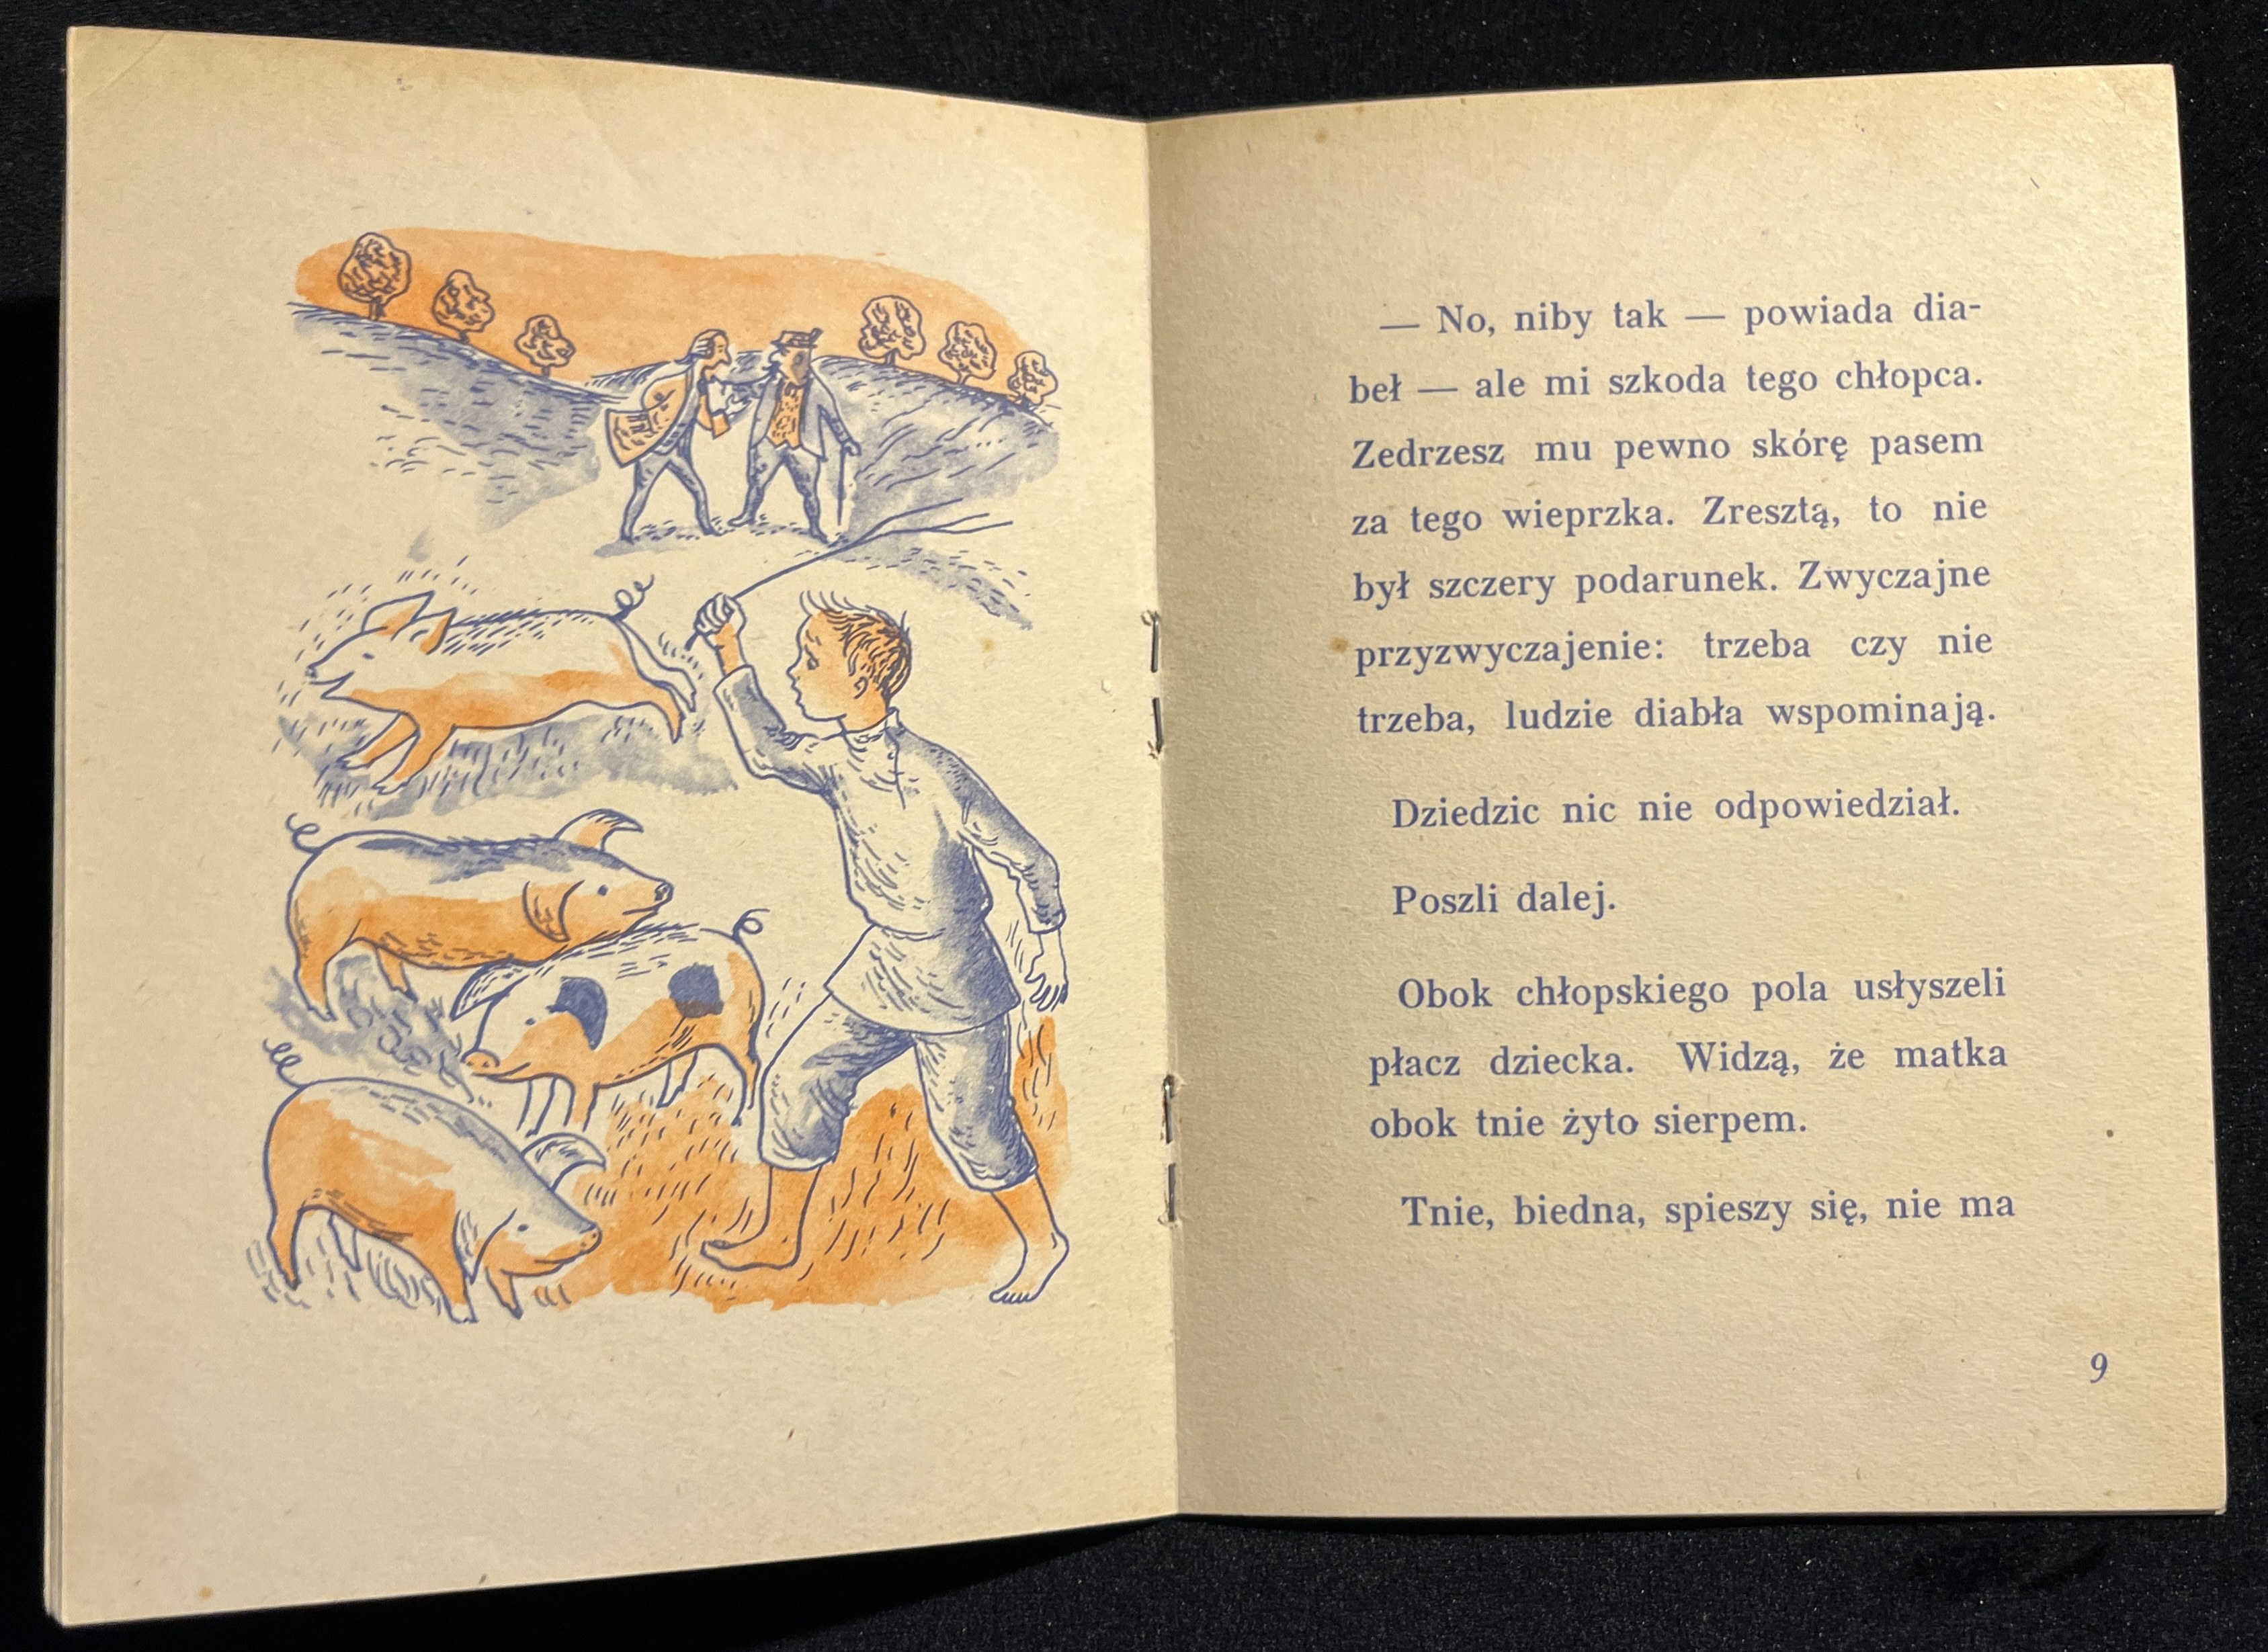 — No, niby tak — powiada dia-
beł — ale mi szkoda tego chłopca.
Zedrzesz mu pewno skórę pasem
za tego wieprzka. Zresztą, to nie
był szczery podarunek. Zwyczajne
przyzwyczajenie: trzeba czy nie
trzeba, ludzie diabła wspominają.
Dziedzic nic nie odpowiedział.
Poszli dalej.
Obok chłopskiego pola usłyszeli
płacz dziecka. Widzą, że matka
obok tnie żyto sierpem.
Tnie, biedna, spieszy się, nie ma
9